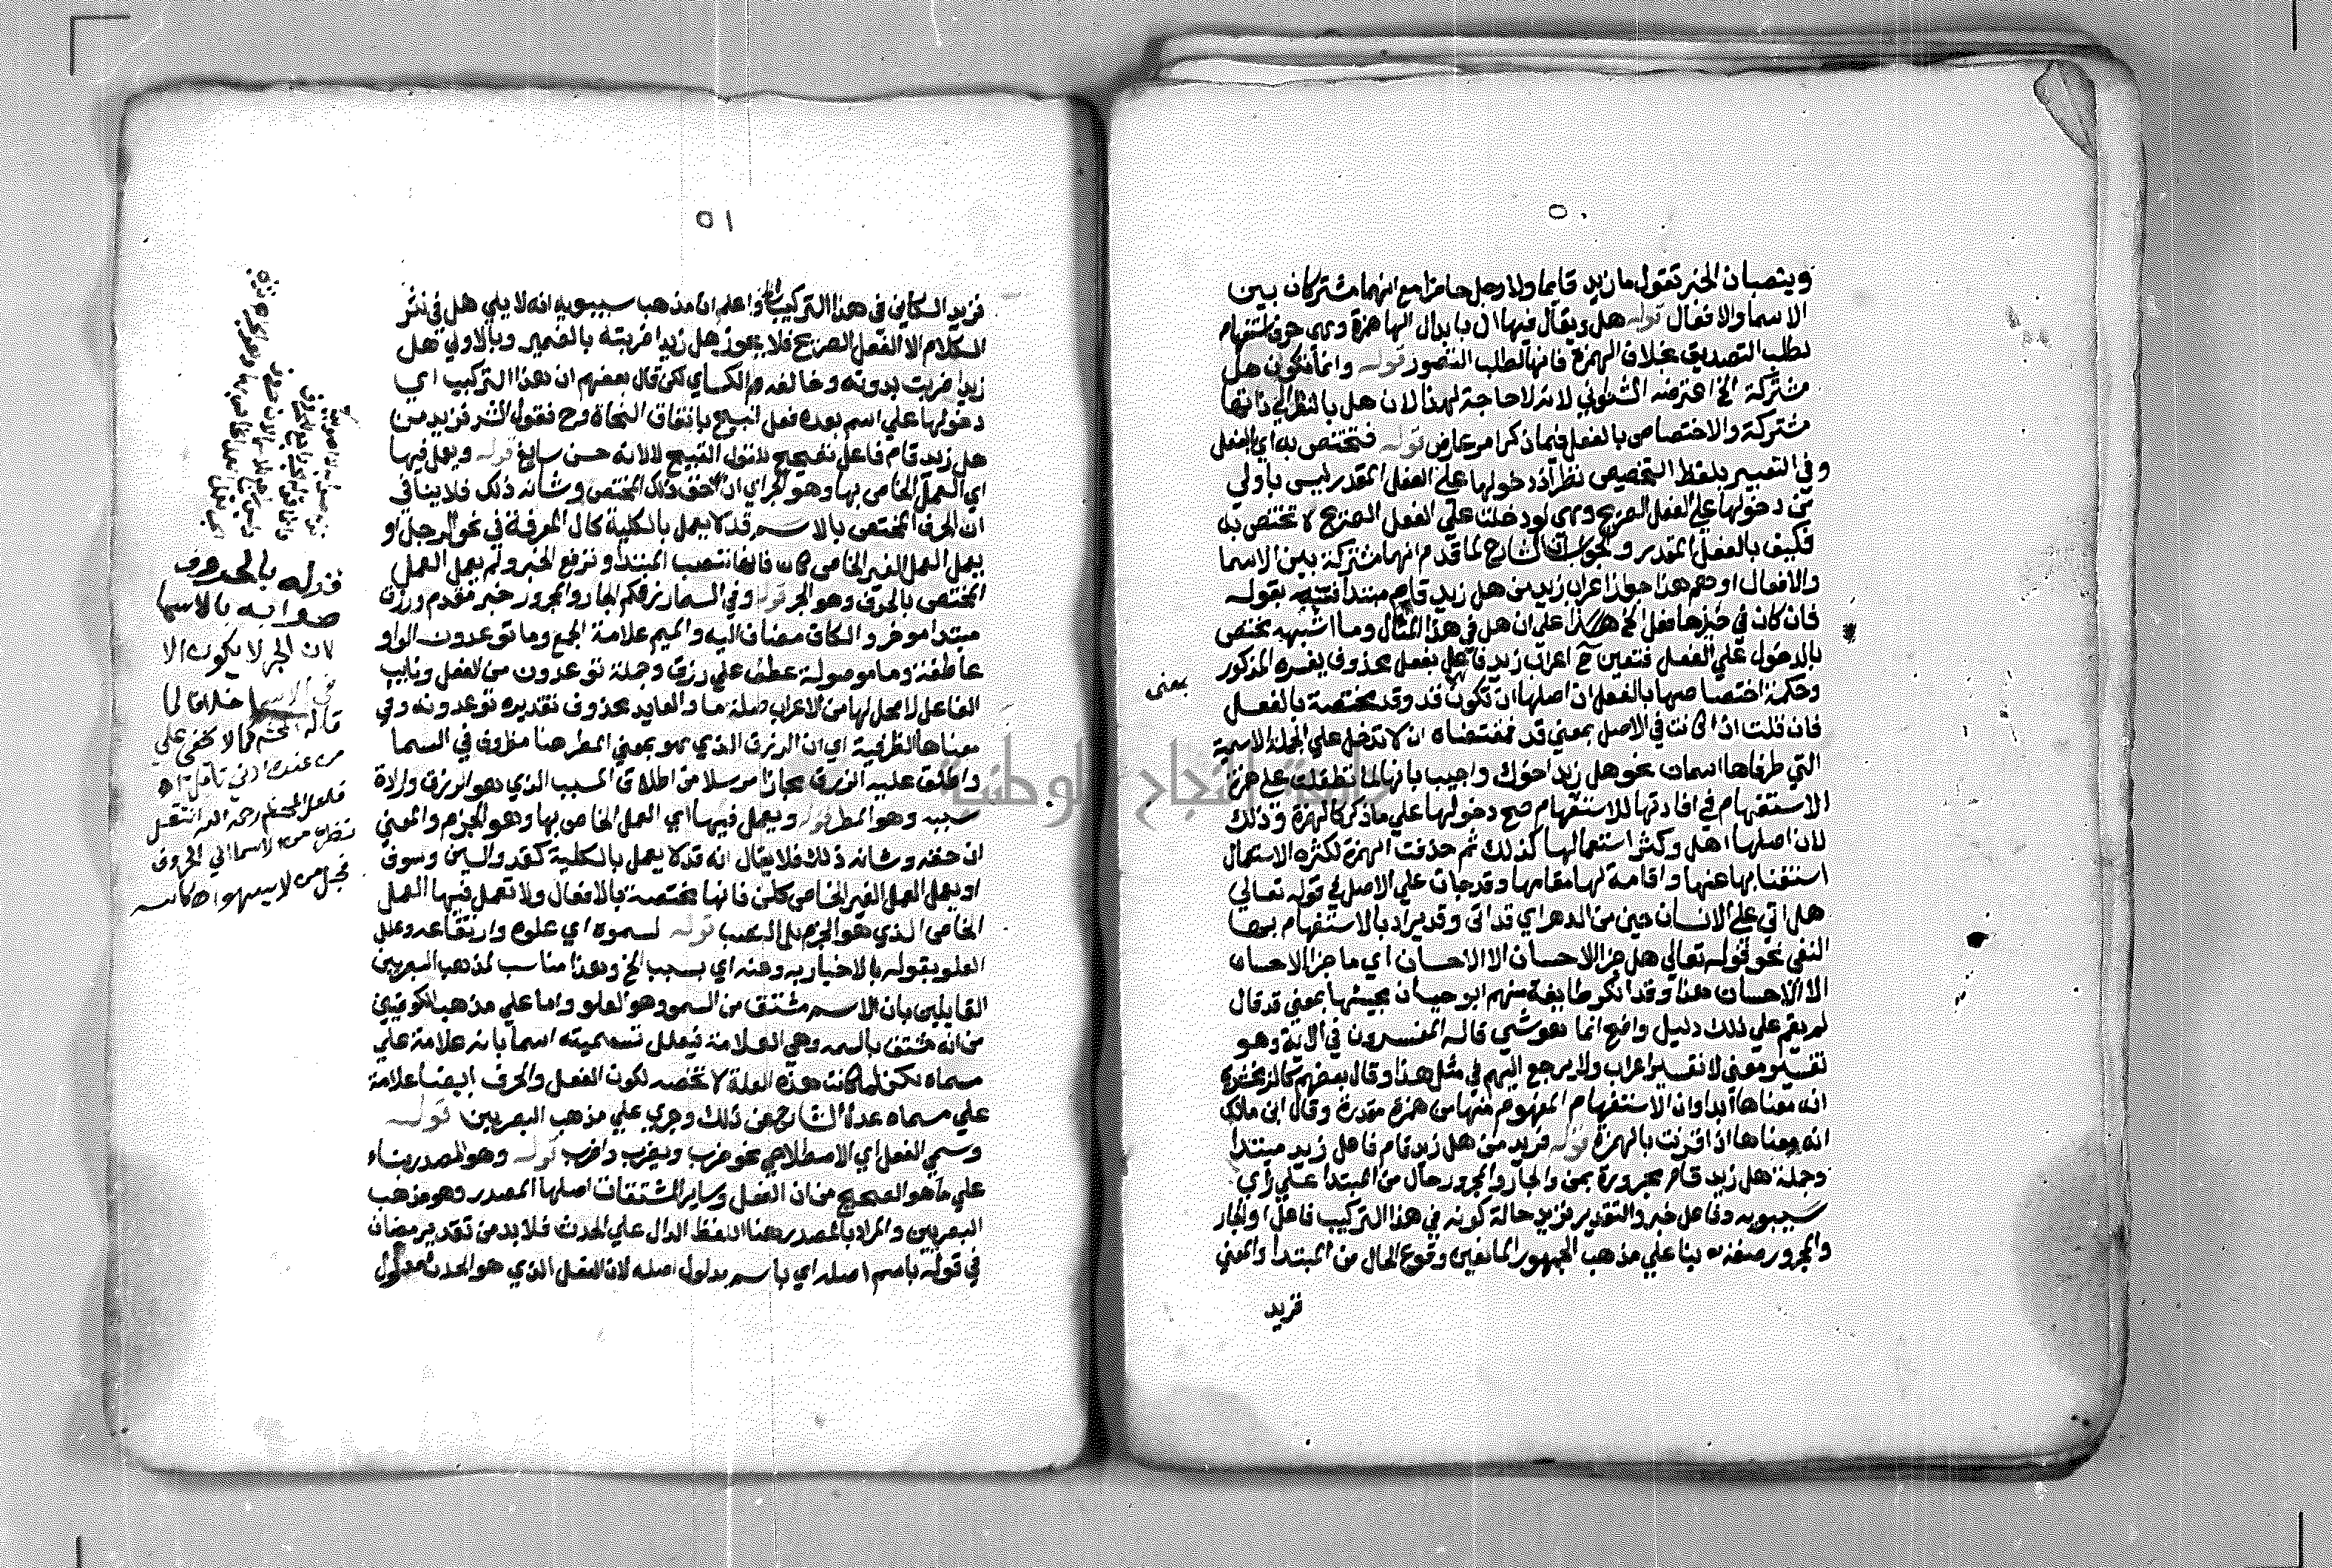 ٥٠
وينصبان الخبر تقول ما زيد قايما ولا رجل حاضرا مع انهما مشتركان بين
الاسما والافعال قوله هل ويقال فيها ال بابدال الها همزة وهي حرف استفهام
لطلب التصديق بخلاف الهمزة فانها لطلب التصور قوله وانما تكون هل
مشتركة الخ اعترضه الشنواني لانه لا حاجة لهذا لان هل بالنظر الي ذاتها
مشتركة والاختصاص بالفعل فيما ذكر امر عارض قوله فتختص به اي بالفعل
وفي التعبير بلفظ التخصيص نظر اذ دخولها علي الفعل المقدر ليس باولي
من دخولها علي الفعل الصريح وهي لو دخلت علي الفعل الصريح لا تختص به
فكيف بالفعل المقدر والجواب ان الشارح لما قدم انها مشتركة بين الاسما
والافعال اوهم هذا جواز اعراب زيد من هل زيد قام مبتدا فنبه بقوله
فان كان في حيزها فعل الخ علي ان هل في هذا المثال وما اشبهه تختص
بالدخول علي الفعل فتعين ح اعراب زيد فاعل بفعل محذوف يفسره المذكور
وحكمة اختصاصها بالفعل ان اصلها ان تكون قد وقد مختصة بالفعل
بمعنى
فان قلت اذا كانت في الاصل بمعني قد فمقتضاه ان لا تدخل علي الجملة الاسمية
التي طرفاها اسمان نحو هل زيد اخوك واجيب بانها لما تطفلت علي همزة
الاستفهام في افادتها للاستفهام صح دخولها علي ما ذكر كالهمزة وذلك
لان اصلها اهل وكثر استعمالها كذلك ثم حذفت الهمزة لكثره الاستعمال
استغنا بها عنها واقامة لها مقامها وقد جات علي الاصل في قوله تعالي
هل اتي علي الانسان حين من الدهر اي قد اتي وقد يراد بالاستفهام بها
النفي نحو قوله تعالي هل جزا الاحسان الا الاحسان اي ما جزا الاحسان
الا الاحسان هذا وقد انكر طايفة منهم ابو حيان مجيئها بمعني قد قال
لم يقم علي ذلك دليل واضح انما هو شي قاله المفسرون في الاية وهو
تفسير معني لا تفسير اعراب ولا يرجع اليهم في مثل هذا وقال بعضهم كالزمخشري
انه معناها ابدا وان الاستفهام المفهوم منها من همزة مقدرة وقال ابن مالك
انه معناها اذا قرنت بالهمزة قوله فزيد من هل زيد قام فاعل زيد مبتدا
وجملة هل زيد قام مجرورة بمن والجار والمجرور حال من المبتدا علي راي
سيبويه وفاعل خبر والتقدير فزيد حالة كونه في هذا التركيب فاعل والجار
والمجرور صفة له بنا علي مذهب الجمهور المانعين وقوع الحال من المبتدا والمعني
فزيد
٥١
فزيد الكاين في هذا التركيب واعلم ان مذهب سيبويه انه لا يلي هل في نثر
الكلام الا الفعل الصريح فلا يجوز هل زيدا ضربته بالضمير وبالاولي هل
زيدا ضربت بدونه وخالفه الكساي لكن قال بعضهم ان هذا التركيب اي
دخولها علي اسم بعده فعل قبيح باتفاق النحاة وح فقول الشر فزيد من
هل زيد قام فاعل تصحيح للقول القبيح لا لانه حسن سايغ قوله ويعمل فيها
اي العمل الخاص بها وهو الجر اي ان حق ذلك المختص وشانه ذلك فلا ينافي
ان الحرف المختص بالاسم قد لا يعمل بالكلية كال المعرفة في نحو الرجل او
يعمل العمل الغير الخاص كان فانها تنصب المبتدا وترفع الخبر ولم يعمل العمل
المختص بالحرف وهو الجر قوله وفي السما رزقكم الجار والمجرور خبر مقدم ورزق
مبتدا موخر والكاف مضاف اليه والميم علامة الجمع وما توعدون الواو
عاطفة وما موصولة عطف علي رزق وجملة توعدون من الفعل ونايب
الفاعل لا محل لها من الاعراب صلة ما والعايد محذوف تقديره توعدونه وفي
معناها الظرفية اي ان الرزق الذي هو بمعني المطر هنا مظروف في السما
واطلق عليه الرزق مجازا مرسلا من اطلاق المسبب الذي هو الرزق وارادة
سببه وهو المطر قوله ويعمل فيها اي العمل الخاص بها وهو الجزم والمعني
ان حقه وشانه ذلك فلا يقال انه قد لا يعمل بالكلية كقد والسين وسوف
او يعمل العمل الغير الخاص كلن فانها مختصة بالافعال ولا تعمل فيها العمل
الخاص الذي هو الجزم بل النصب قوله لسموه اي علوه وارتفاعه وعلل
العلو بقوله بالاخبار به وعنه اي بسبب الخ وهذا مناسب لمذهب البصريين
القايلين بان الاسم مشتق من السمو وهو العلو واما علي مذهب الكوفيين
من انه مشتق بالسمه وهي العلامة فيعلل تسميته اسما بانه علامة علي
مسماه لكن لما كانت هذه العلة لا تخصه لكون الفعل والحرف ايضا علامة
علي مسماه عدل الشارح عن ذلك وجري علي مذهب البصريين قوله
وسمي الفعل اي الاصطلاحي نحو ضرب ويضرب واضرب قوله وهو المصدر بناء
علي ما هو الصحيح من ان الفعل وساير المشتقات اصلها المصدر وهو مذهب
البصريين والمراد بالمصدر هنا اللفظ الدال علي الحدث فلا بد من تقدير مضاف
في قوله باسم اصله اي باسم مدلول اصله لان الفعل الذي هو الحدث مدلول
قوله بالحروف
صوابه بالاسما
لان الجر لا يكون الا
في الاسما خلافا لما
قاله المحشي كما لا يخفي علي
من عنده ادني تامل اه
فلعل المحشي رحمه الله انتقل
نظره من الاسما الي الحروف
فجل من لا يسهو اه كاتبه